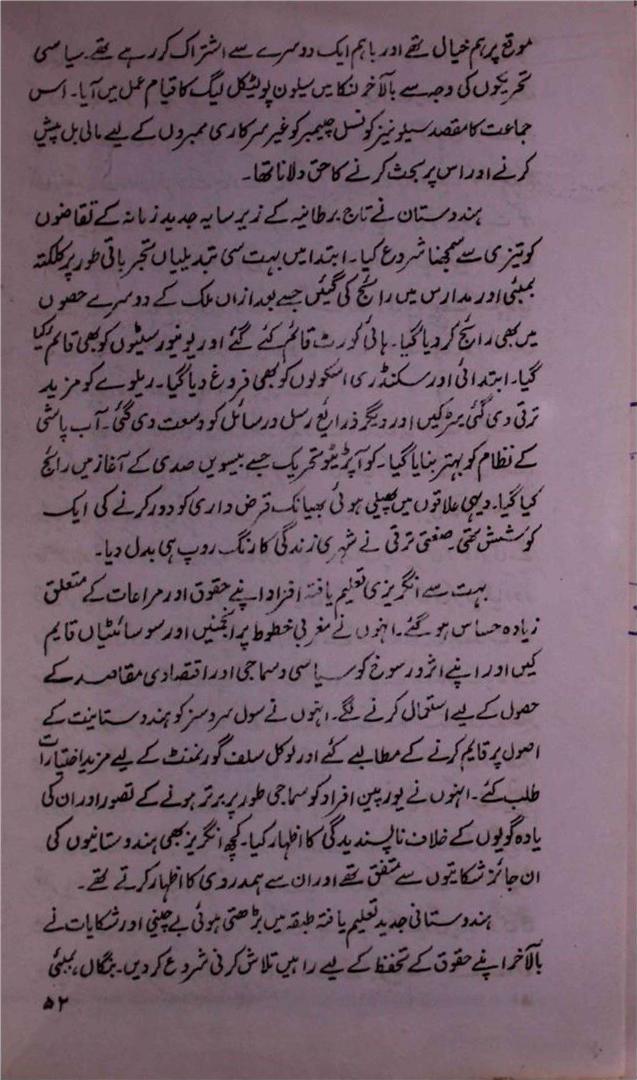 موقع پر ہم خیال تھے اور باہم ایک دوسرے سے اشتراک کر رہے تھے۔ سیاسی
تحریکوں کی وجہ سے بالآخر لنکا میں سیلون پولٹیکل لیگ کا قیام عمل میں آیا۔ اس
جماعت کا مقصد سیلونیز کونسل چیمبر کو غیر سرکاری ممبروں کے لیے مالی بل پیش
کرنے اور اس پر بحث کرنے کا حق دلانا تھا۔
ہندوستان نے تاج برطانیہ کے زیر سایہ جدید زمانہ کے تقاضوں
کو تیزی سے سمجھنا شروع کیا۔ ابتدا میں بہت سی تبدیلیاں تجرباتی طور پر کلکتہ
بمبئی اور مدارس میں رائج کی گئیں جسے بعد ازاں ملک کے دوسرے حصوں
میں بھی رائج کر دیا گیا۔ ہائی کورٹ قائم کئے گئے اور یونیورسیٹیوں کو بھی قائم کیا
گیا۔ ابتدائی اور سکنڈری اسکولوں کو بھی فروغ دیا گیا۔ ریلوے کو مزید
ترقی دی گئی سڑکیں اور دیگر ذرائع رسل و رسائل کو وسعت دی گئی۔ آب پاشی
کے نظام کو بہتر بنایا گیا۔ کوآپریٹو تحریک جسے بیسویں صدی کے آغاز میں رائج
کیا گیا۔ دیہی علاقوں میں پھیلی ہوئی بھیانک قرض داری کو دور کرنے کی ایک
کوشش تھی۔ صنعتی ترقی نے شہری زندگی کا رنگ روپ ہی بدل دیا۔
بہت سے انگریزی تعلیم یافتہ افراد اپنے حقوق اور مراعات کے متعلق
زیادہ حساس ہو گئے۔ انہوں نے مغربی خطوط پر انجمنیں اور سوسائٹیاں قایم
کیں اور اپنے اثر و رسوخ کو سیاسی و سماجی اور اقتصادی مقاصد کے
حصول کے لیے استعمال کرنے لگے۔ انہوں نے سول سروسز کو ہندوستانیت کے
اصول پر قایم کرنے کے مطالبے کئے اور لوکل سلف گورنمنٹ کے لیے مزید اختیارات
طلب کئے۔ انہوں نے یورپین افراد کو سماجی طور پر برتر ہونے کے تصور اور ان کی
یادہ گویوں کے خلاف ناپسندیدگی کا اظہار کیا۔ کچھ انگریز بھی ہندوستانیوں کی
ان جائز شکایتوں سے متفق تھے اور ان سے ہمدردی کا اظہار کرتے تھے۔
ہندوستانی جدید تعلیم یافتہ طبقہ میں بڑھتی ہوئی بے چینی اور شکایات نے
بالآخر اپنے حقوق کے تحفظ کے لیے راہیں تلاش کرنی شروع کر دیں۔ بنگال، بمبئی
۵۲